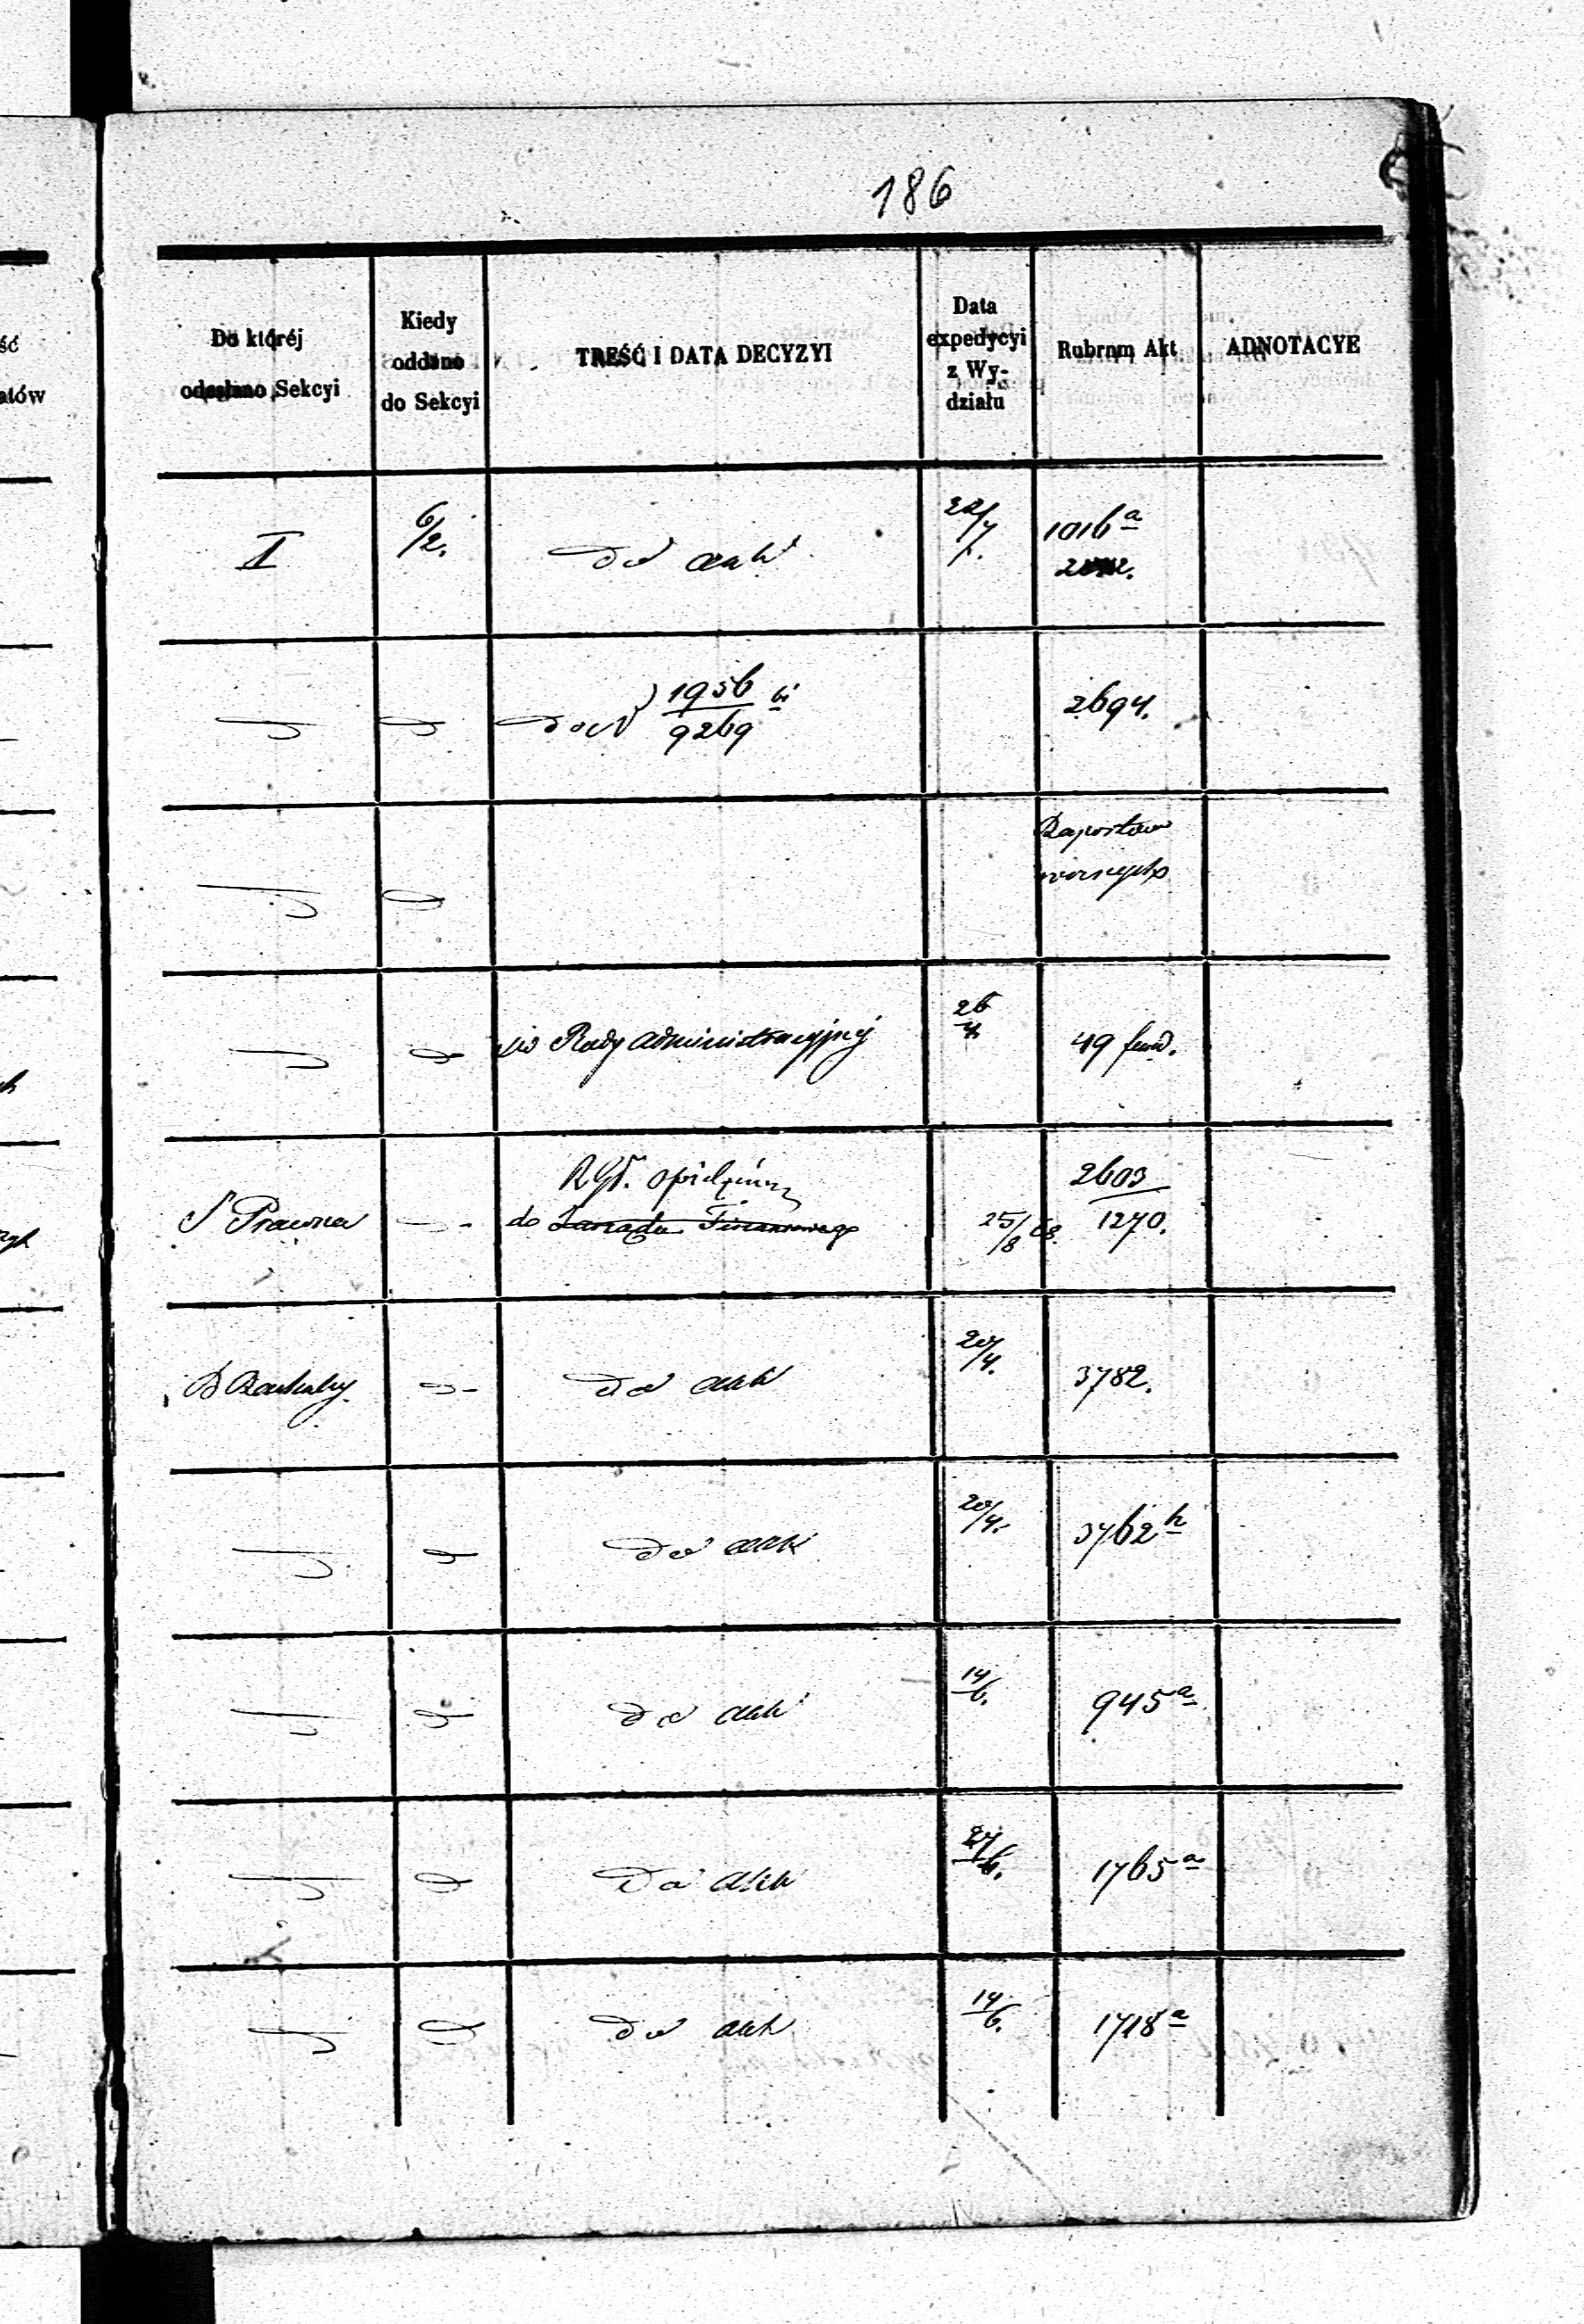 186
Do któréj
odesłano Sekcyi
Kiedy
oddano
do Sekcyi
TREŚĆ I DATA DECYZYI
Data
expedycyi
z Wy-
działu
Rubrum Akt
ADNOTACYE
ść
atów
II
6/2.
do akt
22/4.
1016 a
1956
9269
2694.
Raportów
Rady Administracyjnéj
26
4.
49 fund.
S Prawna
do Zarządu Finansowego
25/8 68.
2603
1270.
B Rachuby.
do akt
20/4.
3782.
do akt
20/4.
3762 h
do akt
14/6.
945 a
do akt
27/6.
1765 a
do akt
14/6.
1718 a